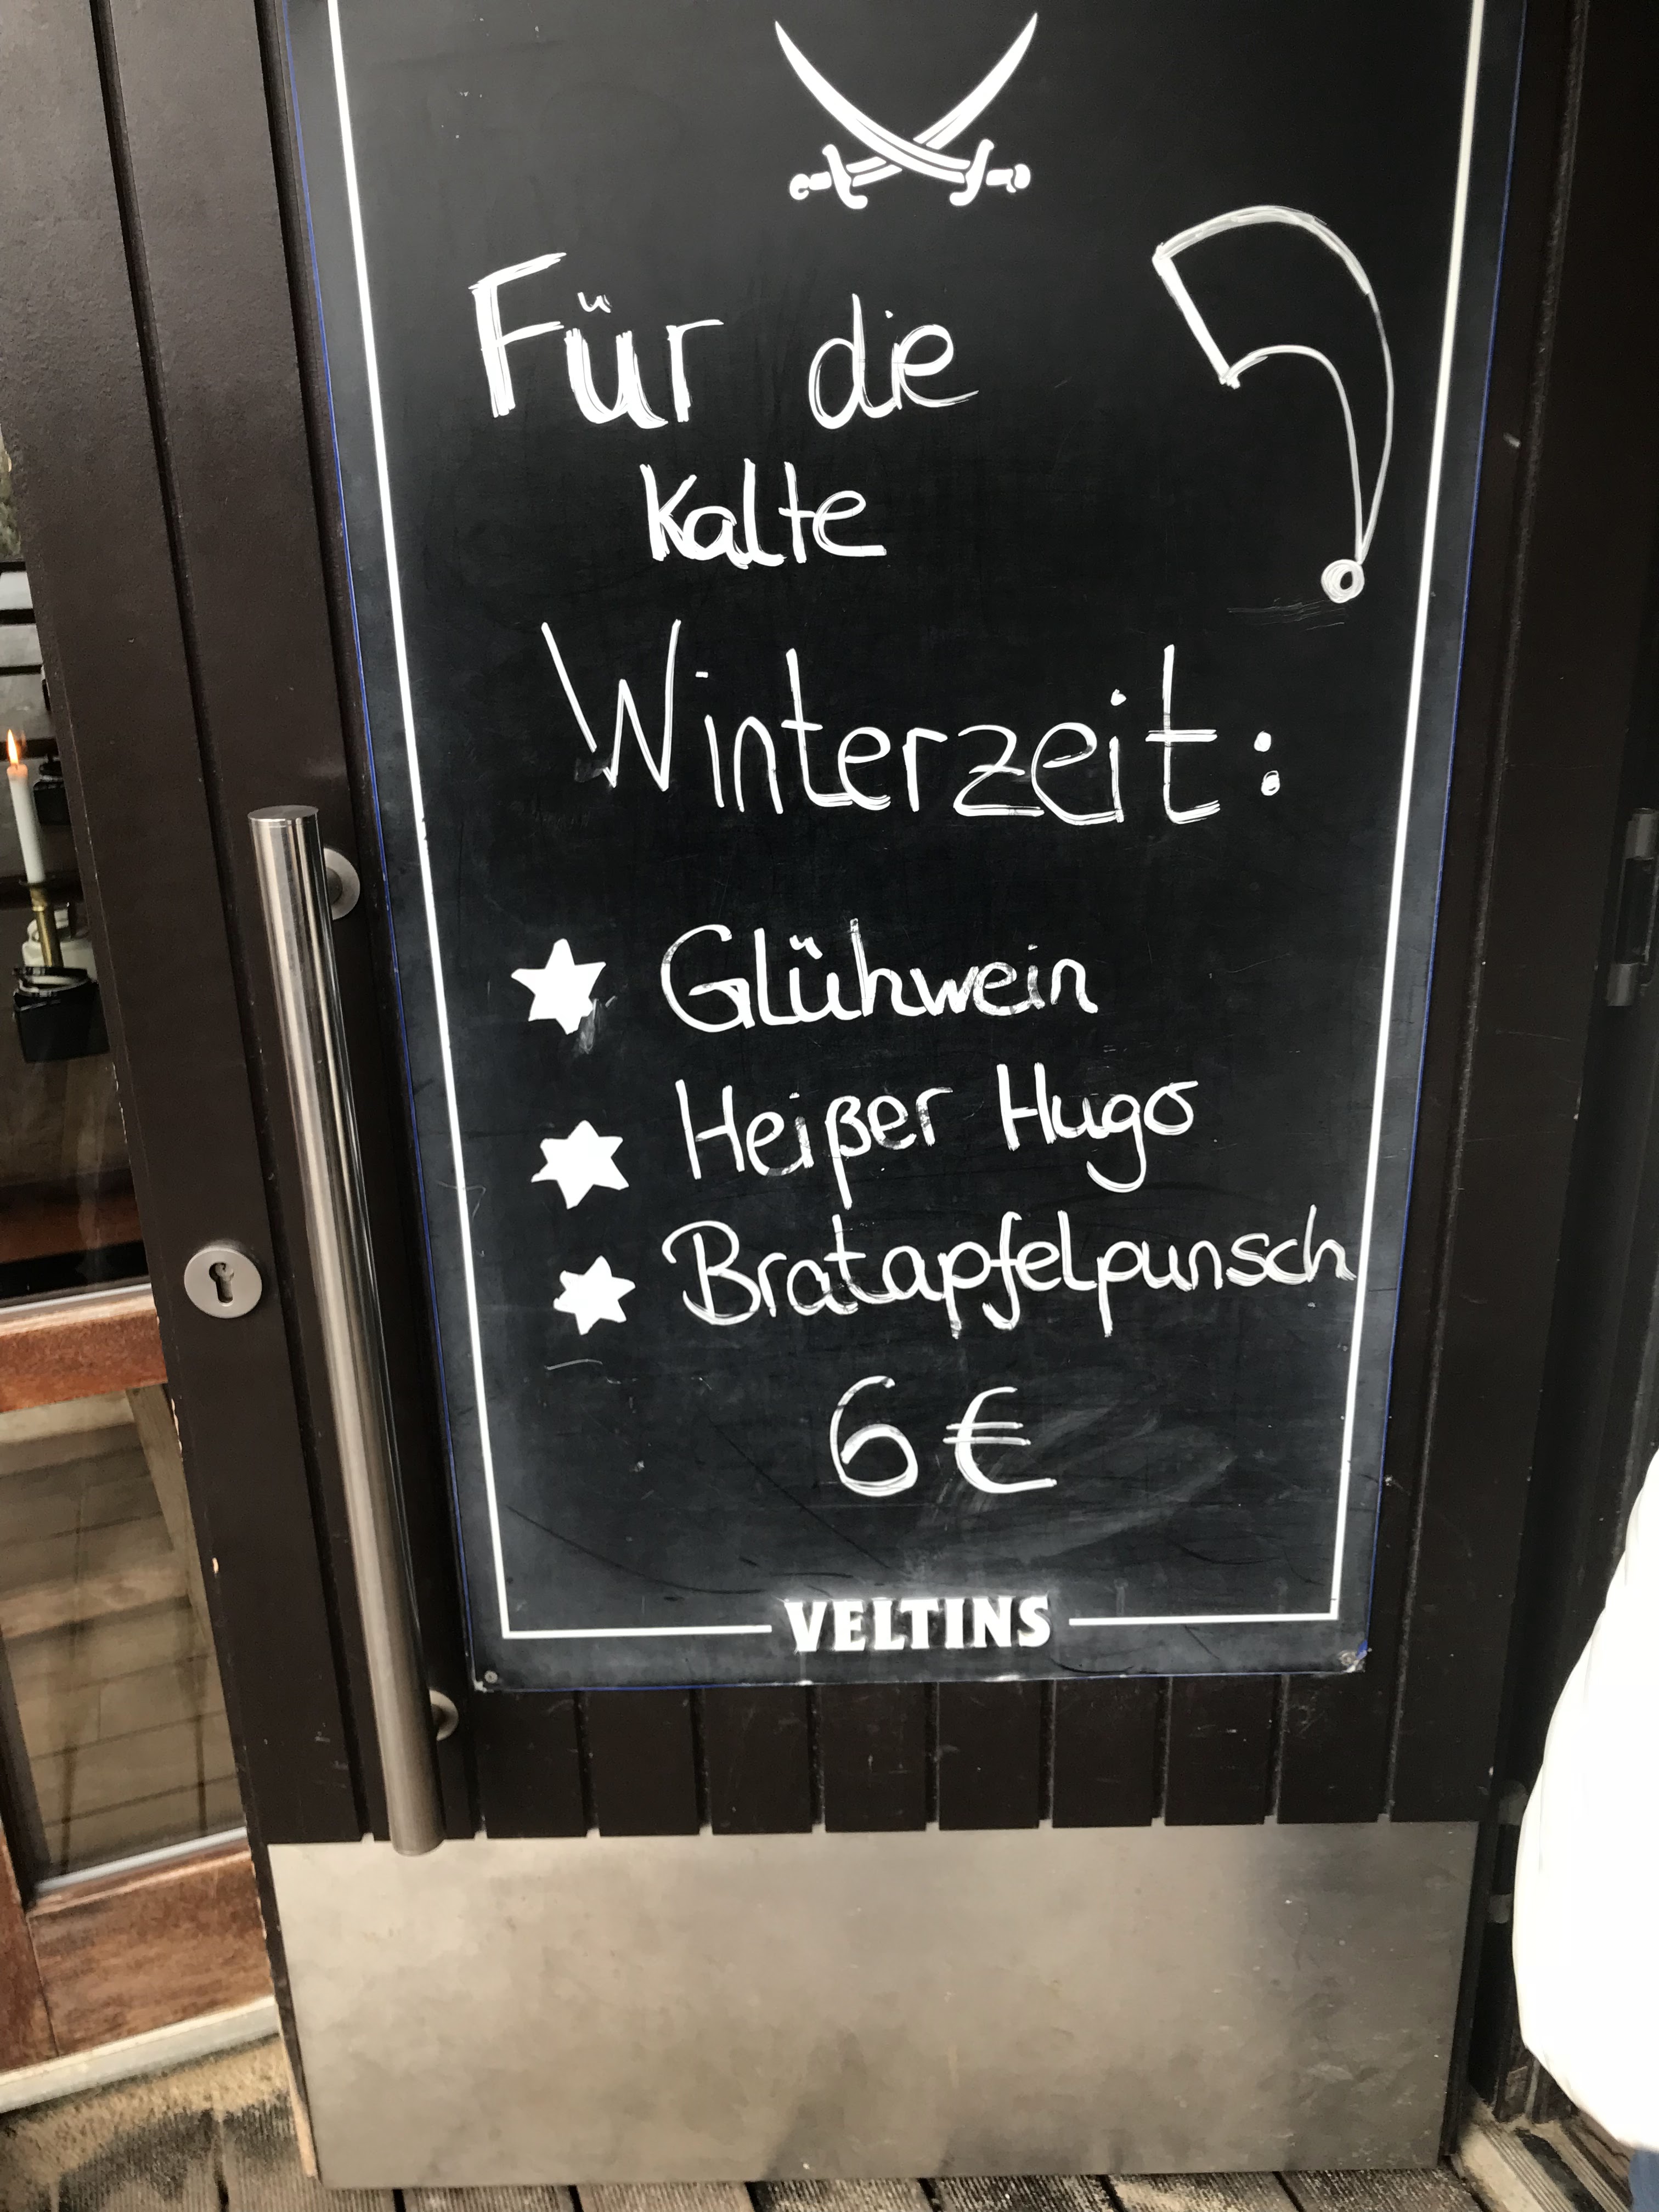 Für die
kalte
Winterzeit:
Glühwein
Heißer Hugo
Bratapfelpunsch
6€
VELTINS